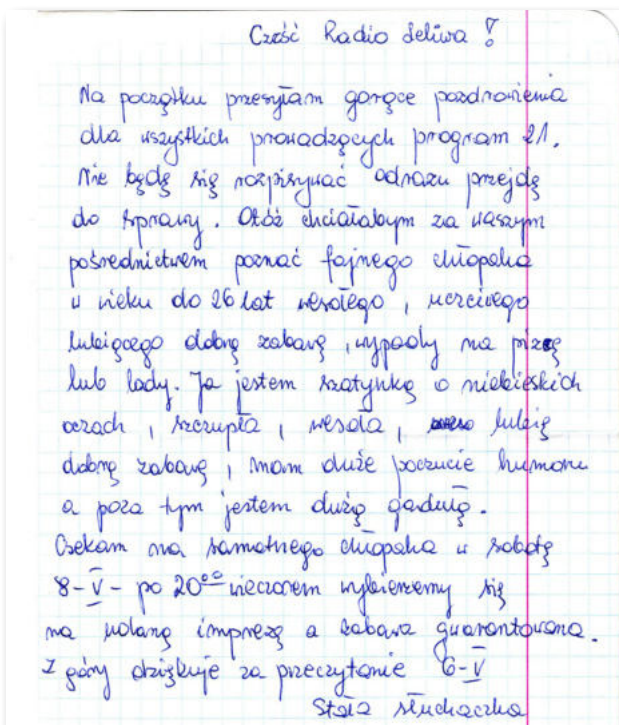 Cześć Radio Leliwa!
Na początku przesyłam gorące pozdrowienia
dla wszystkich prowadzących program 21.
Nie będę się rozpisywać odrazu przejdę
do sprawy. Otóż chciałabym za waszym
pośrednictwem poznać fajnego chłopaka
w wieku do 26 lat wesołego, uczciwego
lubiącego dobrą zabawę, wypady na pizzę
lub lody. Ja jestem szatynką o niebieskich
oczach, szczupła, wesoła, lubię
dobrą zabawę, mam duże poczucie humoru
a poza tym jestem dużą gadułą.
Czekam na samotnego chłopaka w sobotę
8-V- po 20⁰⁰ wieczorem wybierzemy się
na udaną imprezę a zabawa gwarantowana.
Z góry dziękuje za przeczytanie 6-V
Stała słuchaczka